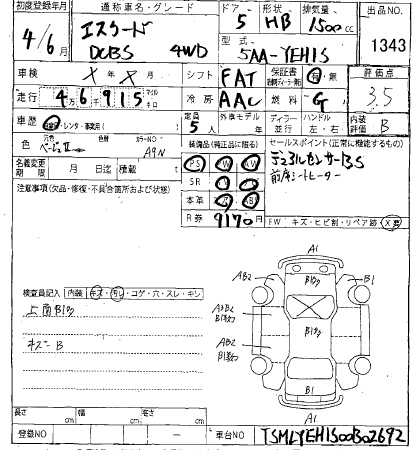 初度登録年月 通称車名・グレード ドア 形状 排気量 出品NO.
4/6月 エスクード 5 HB 1500cc
DCBS 4WD 型式 5AA-YEH1S 1343
車検 X年X月 シフト FAT 保証書 有・無 評価点
走行 46915 マイル キロ 冷房 AAC 燃料 G 3.5
定員 5人 外車モデル ディーラー 並行 ハンドル 左・右 内装 B
車歴 自家・レンタ・事業用( )
色 ベージュⅡ カラーNO. A9N
装備品(純正品に限る) セールスポイント(正常に機能するもの)
名義変更期限 月 日迄 積載
PS PW AW デュアルセンサーBS
SR 前席シートヒーター
本革 AB
R券 9170円
注意事項(欠品・修復・不具合箇所および状態)
FW キズ・ヒビ割・リペア跡(X要)
検査員記入 内装 キズ・汚レ・コゲ・穴・スレ・キレ
上面B1ク
キズ二B
A1
AB2 B1ク B1
A3B2
B1多ク B1多ク
AB2
B1多ク
B1
A1
長さ cm 幅 cm 高さ cm
登録NO ー 車台NO TSMLYEH1S00B02692